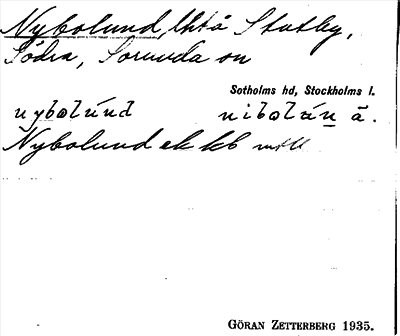 Nybolund, lht å Stutby,
Södra, Sorunda sn
Sotholms hd, Stockholms l.
nybolúnd nibolún ä.
Nybolund ek kb
GÖRAN ZETTERBERG 1935.